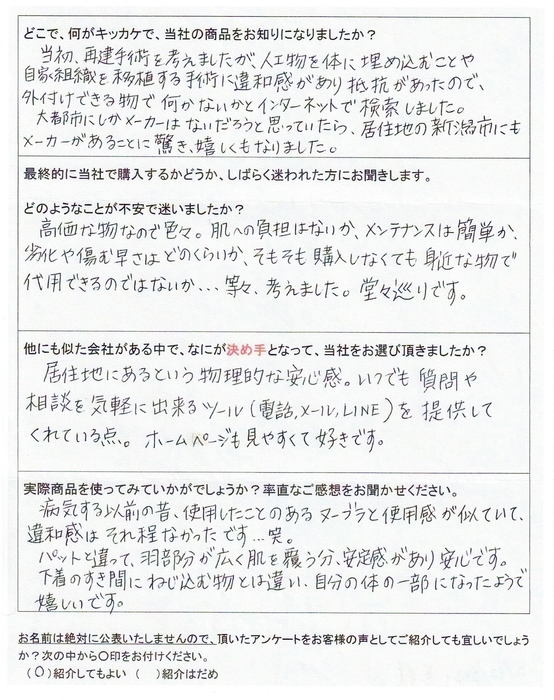 どこで、何がキッカケで、当社の商品をお知りになりましたか？
当初、再建手術を考えましたが、人工物を体に埋め込むことや
自家組織を移植する手術に違和感があり抵抗があったので、
外付けできる物で何かないかとインターネットで検索しました。
大都市にしかメーカーはないだろうと思っていたら、居住地の新潟市にも
メーカーがあることに驚き、嬉しくもなりました。
最終的に当社で購入するかどうか、しばらく迷われた方にお聞きします。
どのようなことが不安で迷いましたか？
高価な物なので色々。肌への負担はないか、メンテナンスは簡単か、
劣化や傷む早さはどのくらいか、そもそも購入しなくても身近な物で
代用できるのではないか...等々、考えました。堂々巡りです。
他にも似た会社がある中で、なにが決め手となって、当社をお選び頂きましたか？
居住地にあるという物理的な安心感。いつでも質問や
相談を気軽に出来るツール(電話,メール,LINE)を提供して
くれている点。ホームページも見やすくて好きです。
実際商品を使ってみていかがでしょうか？率直なご感想をお聞かせください。
病気する以前の昔、使用したことのあるヌーブラと使用感が似ていて、
違和感はそれ程なかったです...笑。
パットと違って、羽部分が広く肌を覆う分、安定感があり安心です。
下着のすき間にねじ込む物とは違い、自分の体の一部になったようで
嬉しいです。
お名前は絶対に公表いたしませんので、頂いたアンケートをお客様の声としてご紹介しても宜しいでしょう
か？次の中から〇印をお付けください。
（〇）紹介してもよい （ ）紹介はだめ